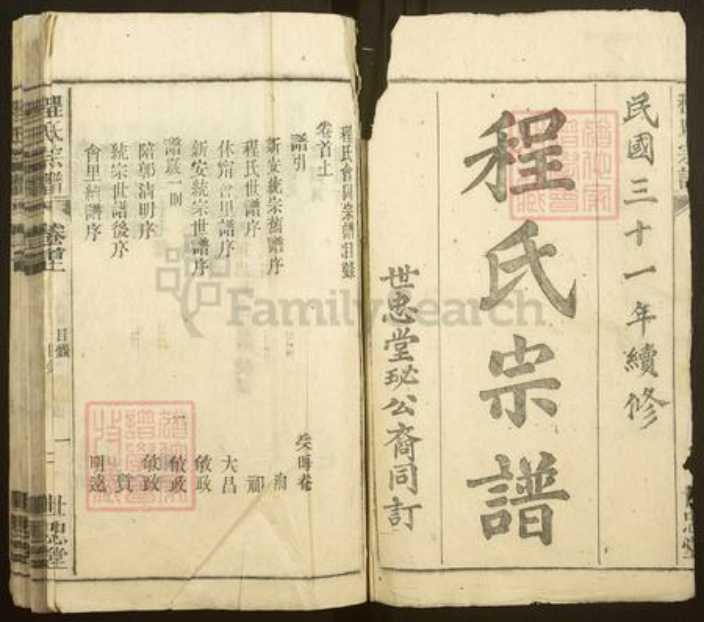 民國三十一年續修
程氏宗譜
世忠堂珌公裔同訂
程氏會同宗譜目錄
卷首上
譜引 失晦菴
新安統宗舊譜序 洵
程氏世譜序 祁
休甯會里譜序 大昌
新安統宗世譜序 敏政
譜敚一則 敏政
陪郭淸明序 敏政
統宗世譜後序 質
會里續譜序 明遠
程氏宗譜 卷首上 目錄 一 世忠堂
FamilySearch